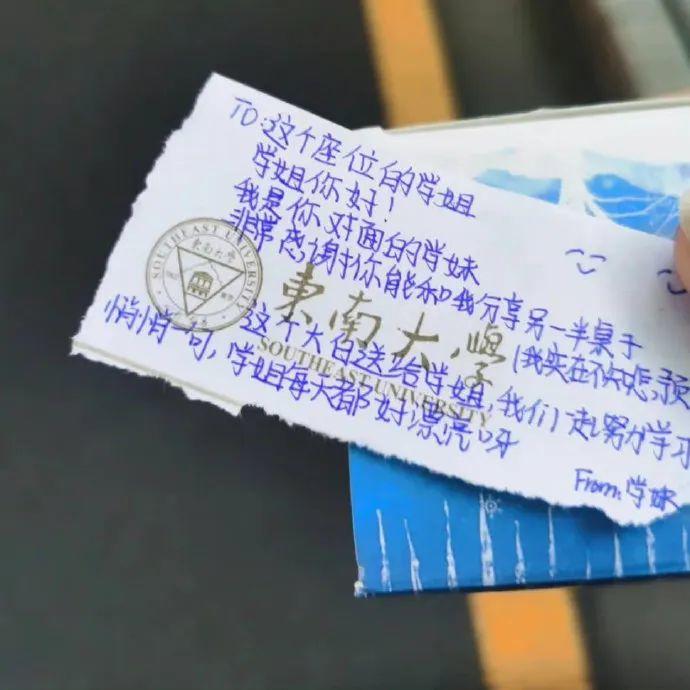 TO:这个座位的学姐
学姐你好!
我是你对面的学妹
非常感谢你能和我分享另一半桌子
这个大白送给学姐,我们一起努力学习
悄悄一句,学姐每天都好漂亮呀
From:学妹
(我实在不好意
SOUTHEAST UNIVERSITY
東南大學
東南大學
SOUTHEAST UNIVERSITY